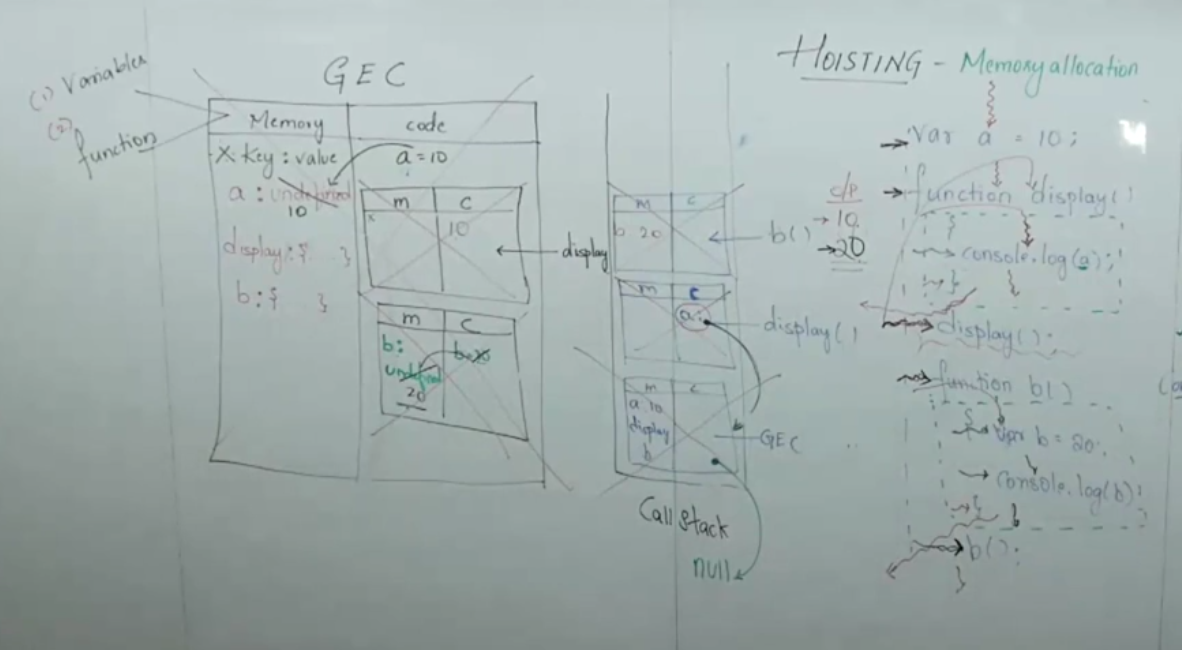 (1) Variables
(2) function
GEC
Memory code
X Key : value a = 10
a : undefined
10
display : { }
b : { }
m c
10
display
m c
b :
undefined
20
m c
b 20
b()
m c
a :
display( )
m c
a 10
display
b
GEC
Call Stack
null
HOISTING - Memory allocation
o/p
→ 10
→ 20
→ Var a = 10 ;
→ function display( )
{
→ console.log(a) ;
→ }
→ display( ) ;
→ function b( )
{
→ var b = 20 ;
→ console.log(b) ;
→ }
→ b( ) ;
}